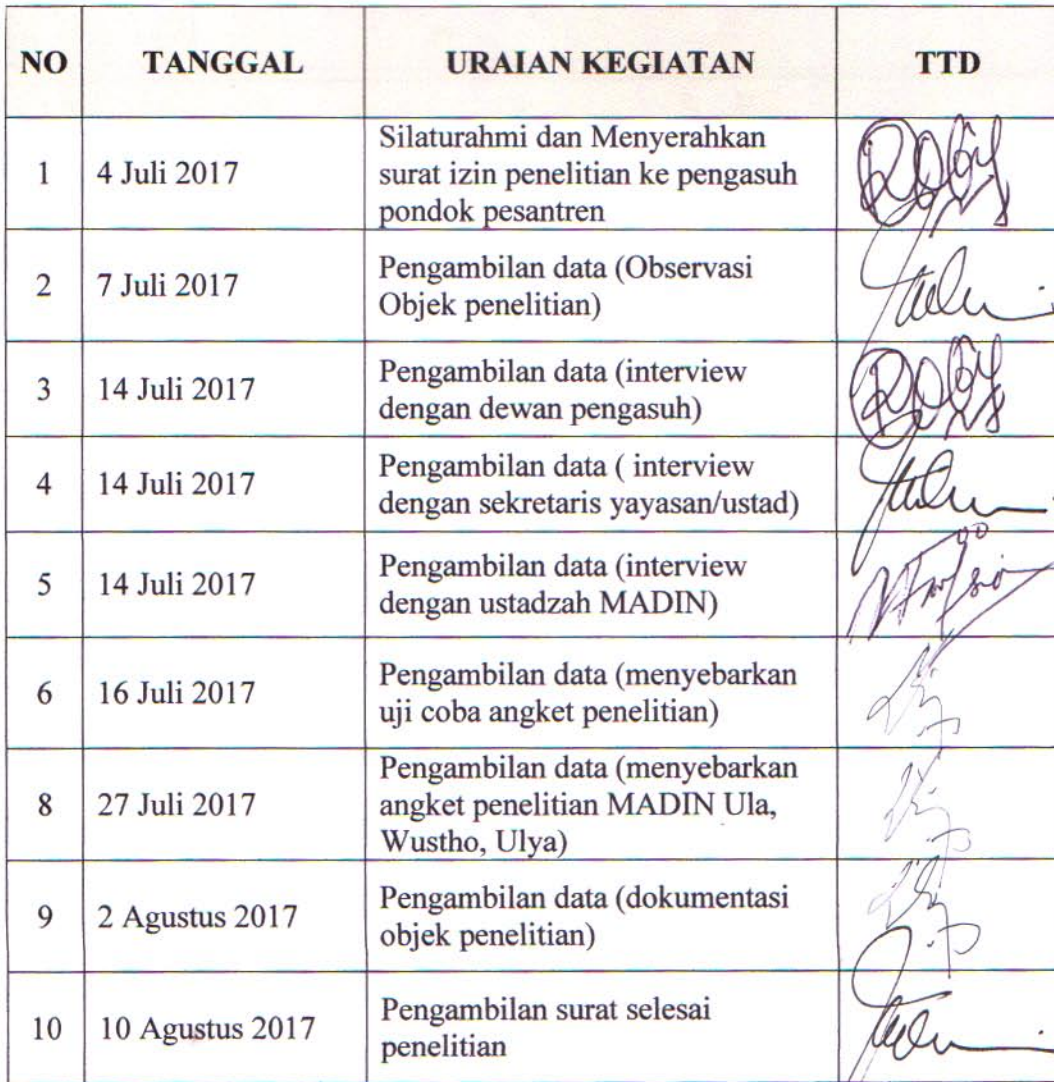 NO TANGGAL URAIAN KEGIATAN TTD
1 4 Juli 2017 Silaturahmi dan Menyerahkan
surat izin penelitian ke pengasuh
pondok pesantren
2 7 Juli 2017 Pengambilan data (Observasi
Objek penelitian)
3 14 Juli 2017 Pengambilan data (interview
dengan dewan pengasuh)
4 14 Juli 2017 Pengambilan data ( interview
dengan sekretaris yayasan/ustad)
5 14 Juli 2017 Pengambilan data (interview
dengan ustadzah MADIN)
6 16 Juli 2017 Pengambilan data (menyebarkan
uji coba angket penelitian)
8 27 Juli 2017 Pengambilan data (menyebarkan
angket penelitian MADIN Ula,
Wustho, Ulya)
9 2 Agustus 2017 Pengambilan data (dokumentasi
objek penelitian)
10 10 Agustus 2017 Pengambilan surat selesai
penelitian